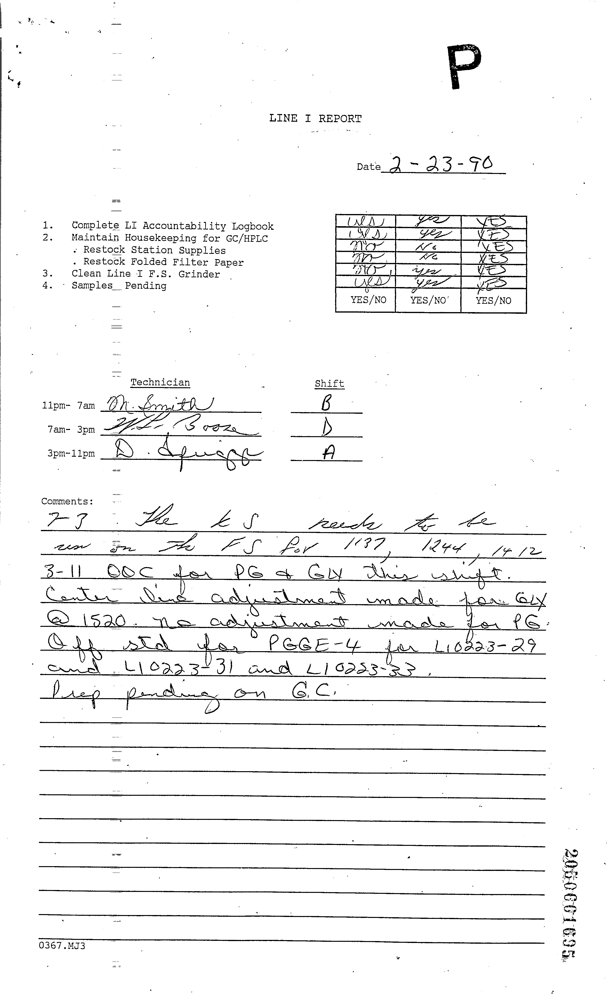 P
LINE I REPORT
Date 2-23-90
1. Complete LI Accountability Logbook
2. Maintain Housekeeping for GC/HPLC
. Restock Station Supplies
. Restock Folded Filter Paper
3. Clean Line I F.S. Grinder
4. Samples Pending
yes yes YES
yes yes YES
no No YES
no No YES
no yes YES
yes yes YES
YES/NO YES/NO YES/NO
Technician Shift
11pm- 7am M. Smith B
7am- 3pm W.L. Booze D
3pm-11pm D. A
Comments:
7-3 The KS needs to be
run on the FS for 1137, 1244, 1412
3-11 OOC for PG & GLY this shift.
Center line adjustment made for GLY
@ 1520. No adjustment made for PG.
Off std for PGGE-4 for LI0223-29
and LI0223-31 and LI0223-33.
Prep pending on G.C.
0367.MJ3
2050001695